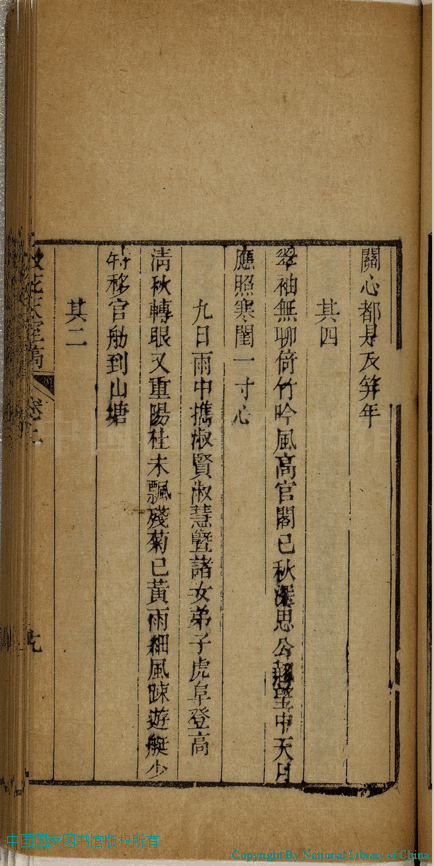 關心都是及筓年
其四
翠袖無聊倚竹吟風高官閣已秋深思公望中天月
應照寒閨一寸心
九日雨中攜淑賢淑慧暨諸女弟子虎阜登高
清秋轉眼又重陽桂未飄殘菊已黃雨細風疎遊艇少
移官舫到山塘
其二
稿 卷二
九
中国国家图书馆版权所有
Copyright By National Library of China